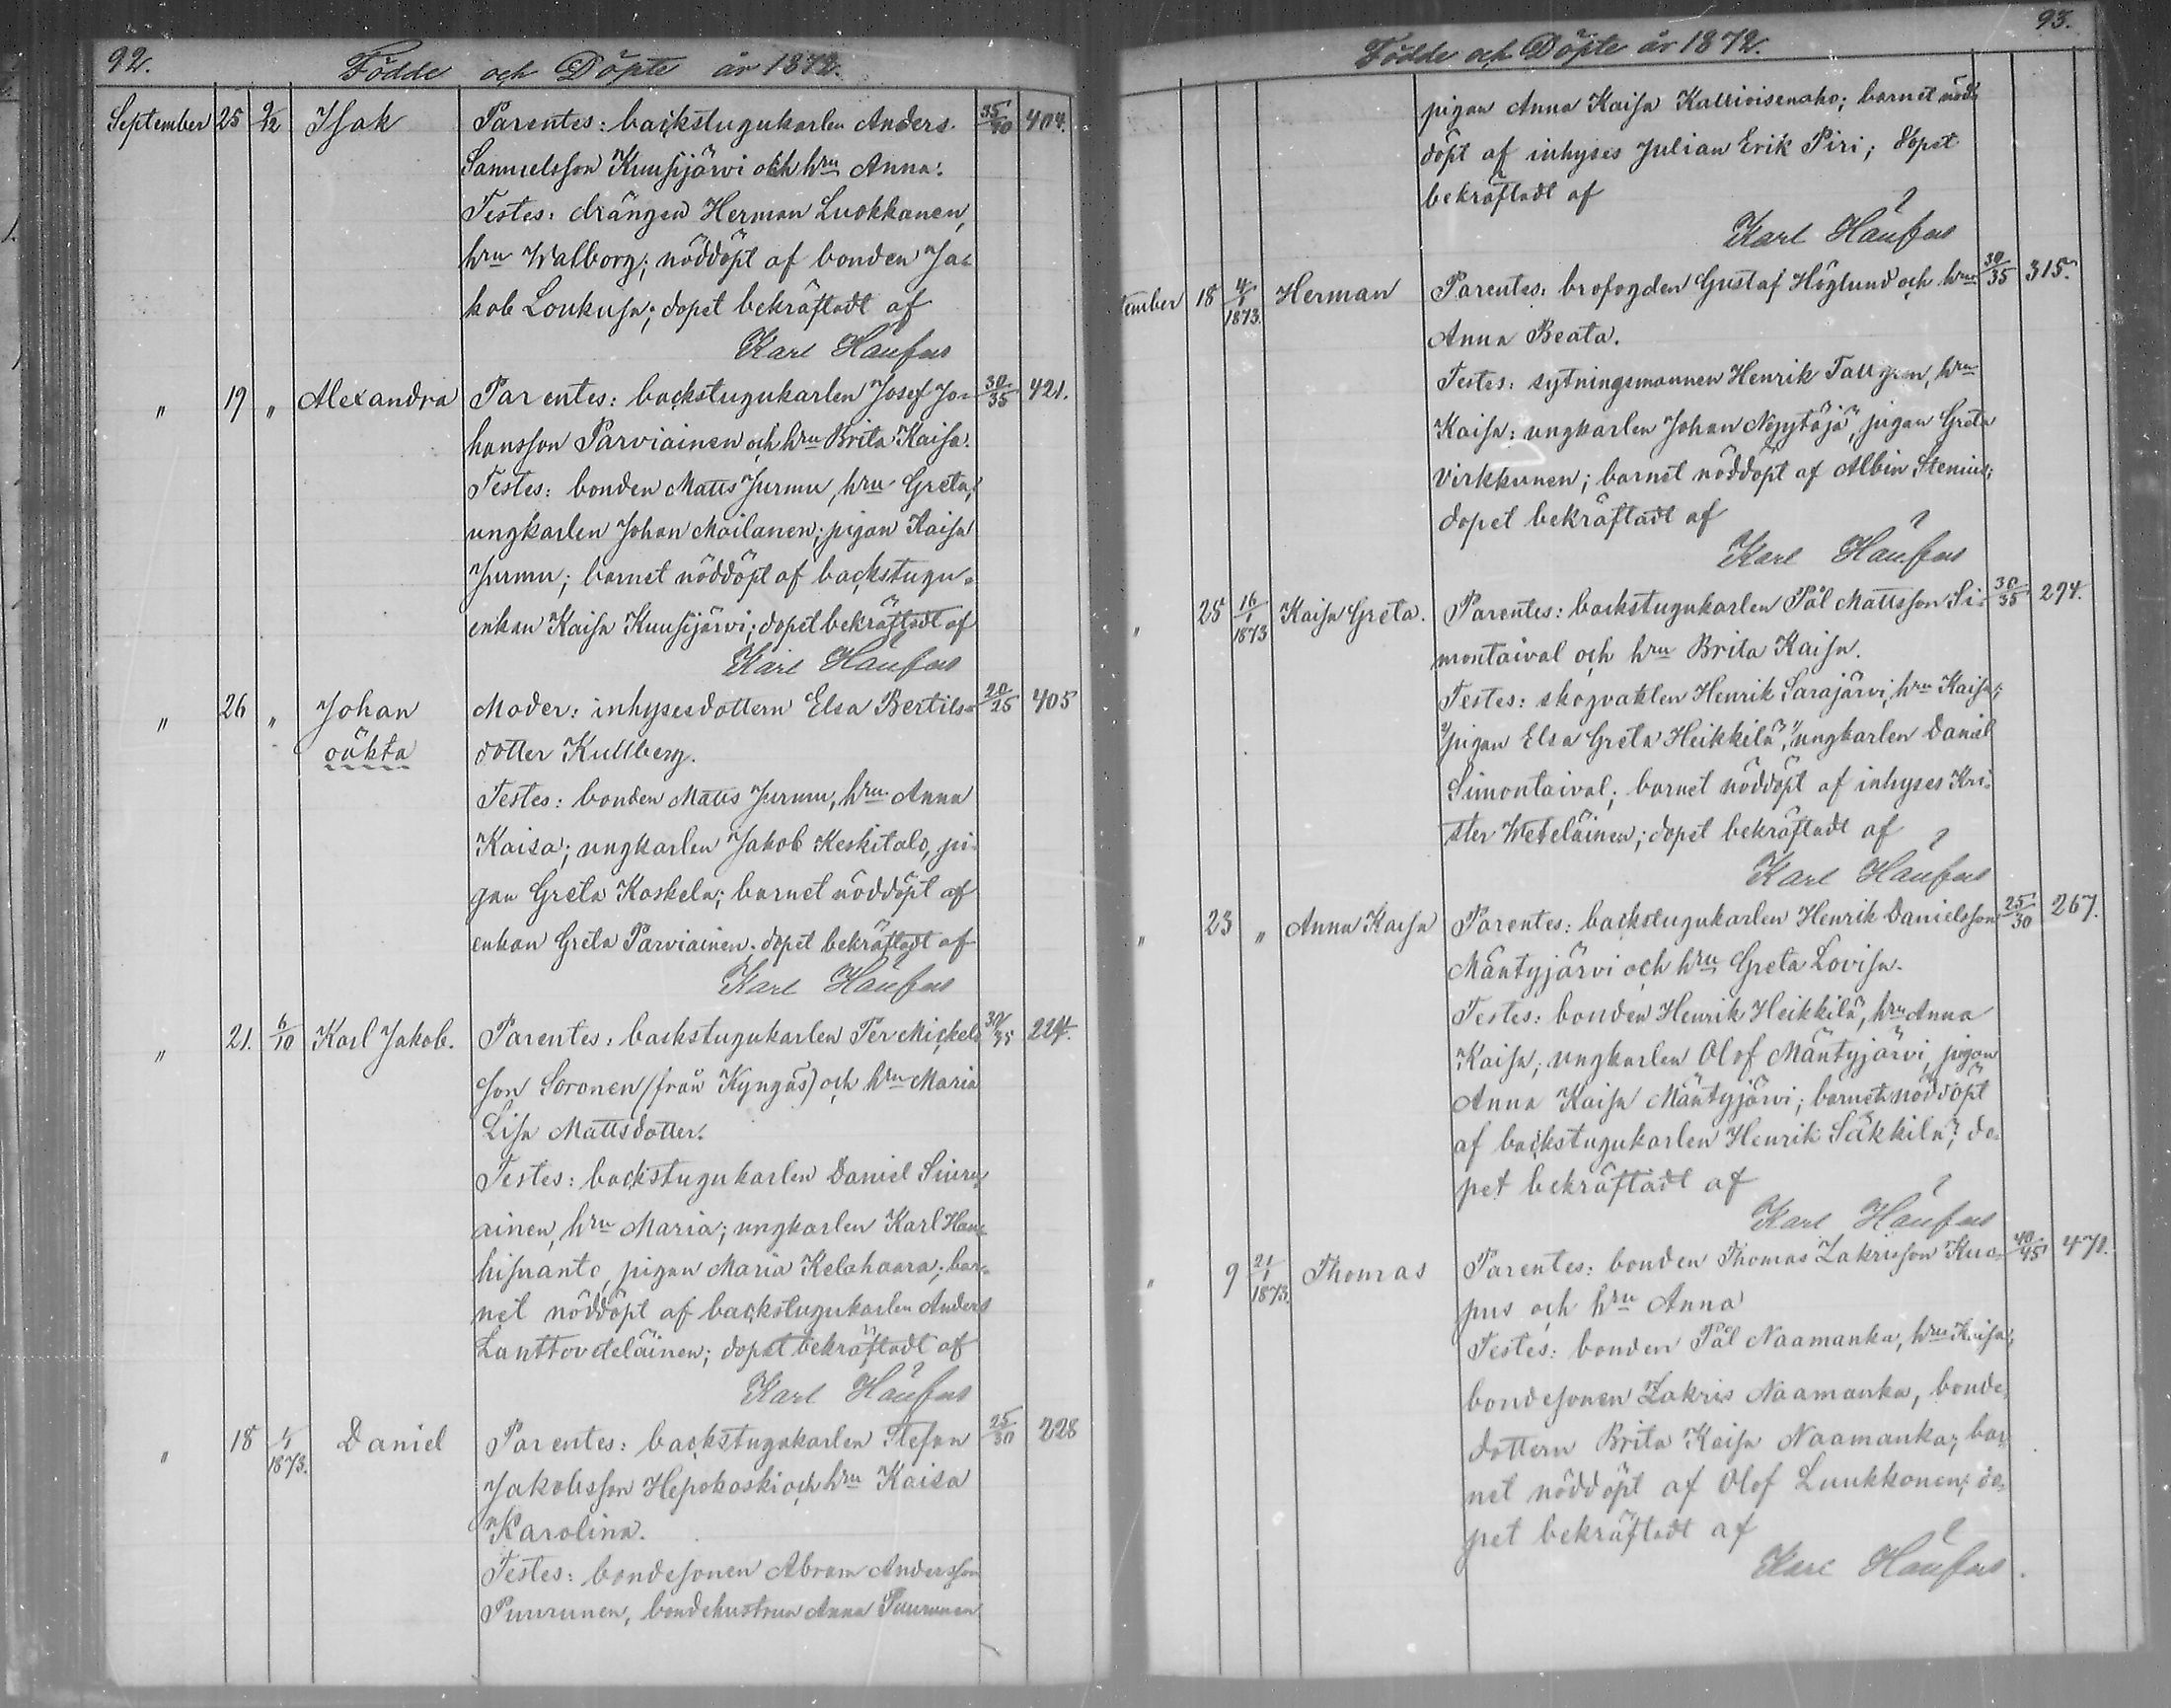 92.
Födde och Döpte år 1872.
September 25 9/12 Isak Parentes: backstugukarlen Anders 35/40 404.
Samuelsson Kuusijärvi och hru Anna.
Testes: drängen Herman Luokkanen,
hru Walborg; nöddöpt af bonden Ja-
kob Loukusa; dopet bekräftadt af
Karl
" 19 " Alexandra Parentes: backstugukarlen Josef Jo- 30/35 421.
hansson Parviainen och hru Brita Kaisa.
Testes: bonden Matts Jurmu, hru Greta;
ungkarlen Johan Mailanen; pigan Kaisa
Jurmu; barnet nöddöpt af backstugu-
enkan Kaisa Kuusijärvi; dopet bekräftadt af
Karl
" 26 " Johan Moder: inhysesdottern Elsa Bertils- 20/25 405
oäkta dotter Kullberg.
Testes: bonden Matts Jurmu, hru Anna
Kaisa; ungkarlen Jakob Keskitalo, pi-
gan Greta Koskela; barnet nöddöpt af
enkan Greta Parviainen; dopet bekräftadt af
Karl
" 21. 6/10 Karl Jakob. Parentes: backstugukarlen Per Mickels 30/35 224.
son Soronen (från Kyngäs) och hru Maria
Lisa Mattsdotter.
Testes: backstugukarlen Daniel Siuru-
ainen, hru Maria; ungkarlen Karl Hau-
hisranto, pigan Maria Kelahaara; bar-
net nöddöpt af backstugukarlen Anders
dopet bekräftadt af
Karl
" 18 4/1 1873. Daniel Parentes: backstugukarlen Stefan 25/30 228
Jakobsson Hepokoski och hru Kaisa
Karolina.
Testes: bondesonen Abram Andersson
Puurunen, bondehustrun Anna Puurunen
93.
Födde och Döpte år 1872.
pigan Anna Kaisa Kallioisenaho; barnet nöd-
döpt af inhyses Julian Erik Piri; dopet
bekräftadt af
Karl
tember 18 4/1 1873. Herman Parentes: brofogden Gustaf Höglund och hru 30/35 315.
Anna Beata.
Testes: sytningsmannen Henrik Tallgren, hru
Kaisa; ungkarlen Johan Näpytäjä, pigan Greta
Virkkunen; barnet nöddöpt af Albin Stenius;
dopet bekräftadt af
Karl
" 25 16/1 1873 Kaisa Greta. Parentes: backstugukarlen Pål Mattsson Si- 30/35 294.
montaival och hru Brita Kaisa.
Testes: skogvakten Henrik Sarajärvi, hru Kaisa;
pigan Elsa Greta Heikkilä, ungkarlen Daniel
Simontaival; barnet nöddöpt af inhyses Kri-
ster Weteläinen; dopet bekräftadt af
Karl
" 23 " Anna Kaisa Parentes: backstugukarlen Henrik Danielsson 25/30 267.
Mäntyjärvi och hru Greta Lovisa.
Testes: bonden Henrik Heikkilä, hru Anna
Kaisa; ungkarlen Olof Mäntyjärvi, pigan
Anna Kaisa Mäntyjärvi; barnet nöddöpt
af backstugukarlen Henrik Säkkilä; do-
pet bekräftadt af
Karl
" 9 21/1 1873. Thomas Parentes: bonden Thomas Zakrisson Kuo- 40/45 471.
pus och hru Anna
Testes: bonden Pål Naamanka, hru Kaisa;
bondesonen Zakris Naamanka, bonde-
dottern Brita Kaisa Naamanka; bar-
net nöddöpt af Olof Luukkonen; do-
pet bekräftadt af
Karl